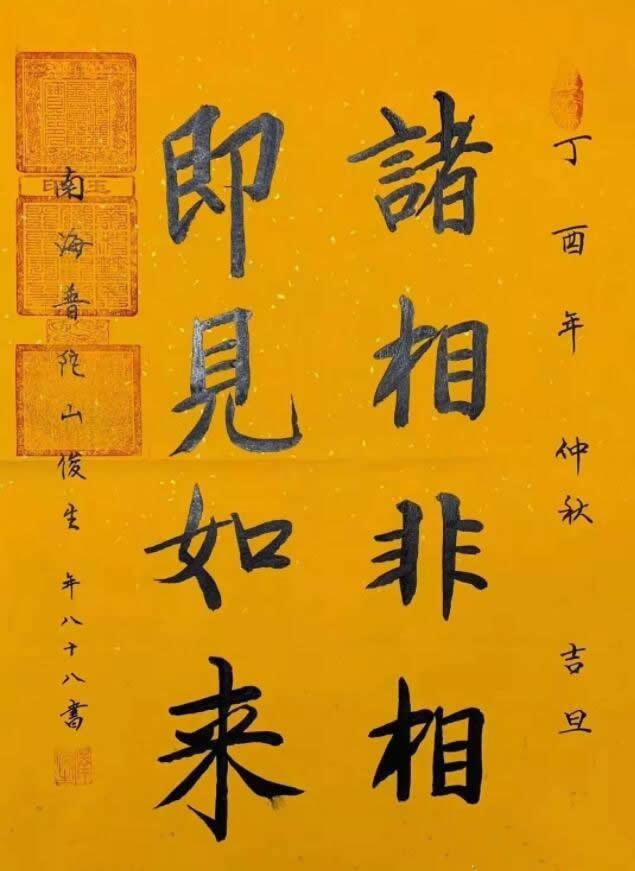 丁酉年 仲秋 吉旦
諸相非相
即見如来
南海普陀山俊生 年八十八書